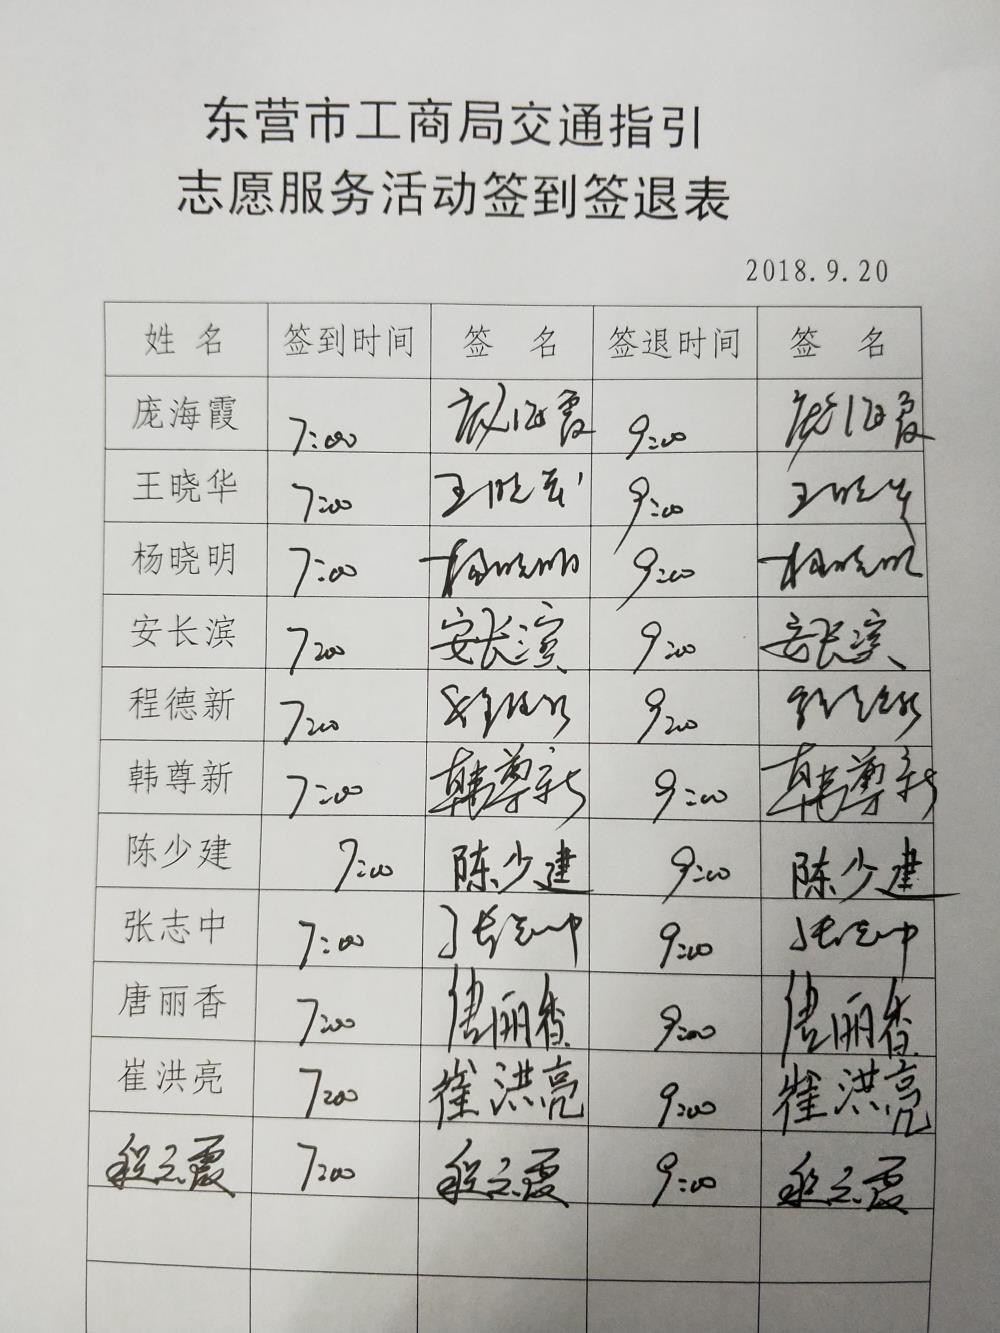 东营市工商局交通指引
志愿服务活动签到签退表
2018.9.20
姓名 签到时间 签名 签退时间 签名
庞海霞 7:00 庞海霞 9:00 庞海霞
王晓华 7:00 王晓华 9:00 王晓华
杨晓明 7:00 杨晓明 9:00 杨晓明
安长滨 7:00 安长滨 9:00 安长滨
程德新 7:00 程德新 9:00 程德新
韩尊新 7:00 韩尊新 9:00 韩尊新
陈少建 7:00 陈少建 9:00 陈少建
张志中 7:00 张志中 9:00 张志中
唐丽香 7:00 唐丽香 9:00 唐丽香
崔洪亮 7:00 崔洪亮 9:00 崔洪亮
程云霞 7:00 程云霞 9:00 程云霞